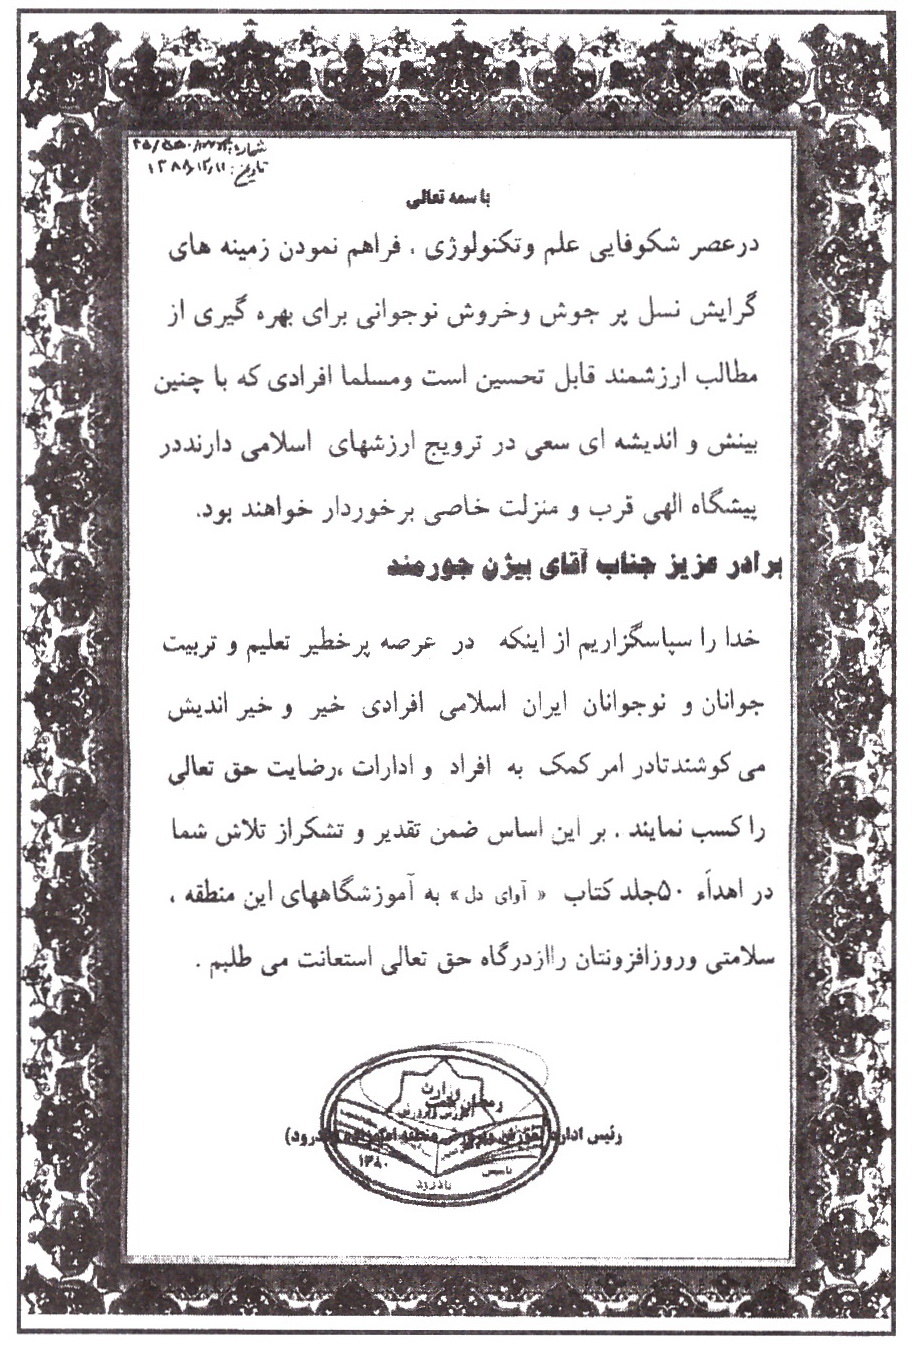 شماره:
تاریخ: 
با سمه تعالی
درعصر شکوفایی علم وتکنولوژی ، فراهم نمودن زمینه های
گرایش نسل پر جوش وخروش نوجوانی برای بهره گیری از
مطالب ارزشمند قابل تحسین است ومسلما افرادی که با چنین
بینش و اندیشه ای سعی در ترویج ارزشهای اسلامی دارنددر
پیشگاه الهی قرب و منزلت خاصی برخوردار خواهند بود.
برادر عزیز جناب آقای بیژن جورمند
خدا را سپاسگزاریم از اینکه در عرصه پرخطیر تعلیم و تربیت
جوانان و نوجوانان ایران اسلامی افرادی خیر و خیر اندیش
می کوشندتادر امر کمک به افراد و ادارات ،رضایت حق تعالی
راکسب نمایند . بر این اساس ضمن تقدیر و تشکراز تلاش شما
در اهداَء ۵۰جلد کتاب « آوای دل» به آموزشگاههای این منطقه ،
سلامتی وروزافزونتان رااز‌درگاه حق تعالی استعانت می طلبم .
وزارت
آموزش و پرورش
رمضان
رئیس اداره آموزش و پرورش منطقه
۱۳۸۰
تاسیس
بادرود